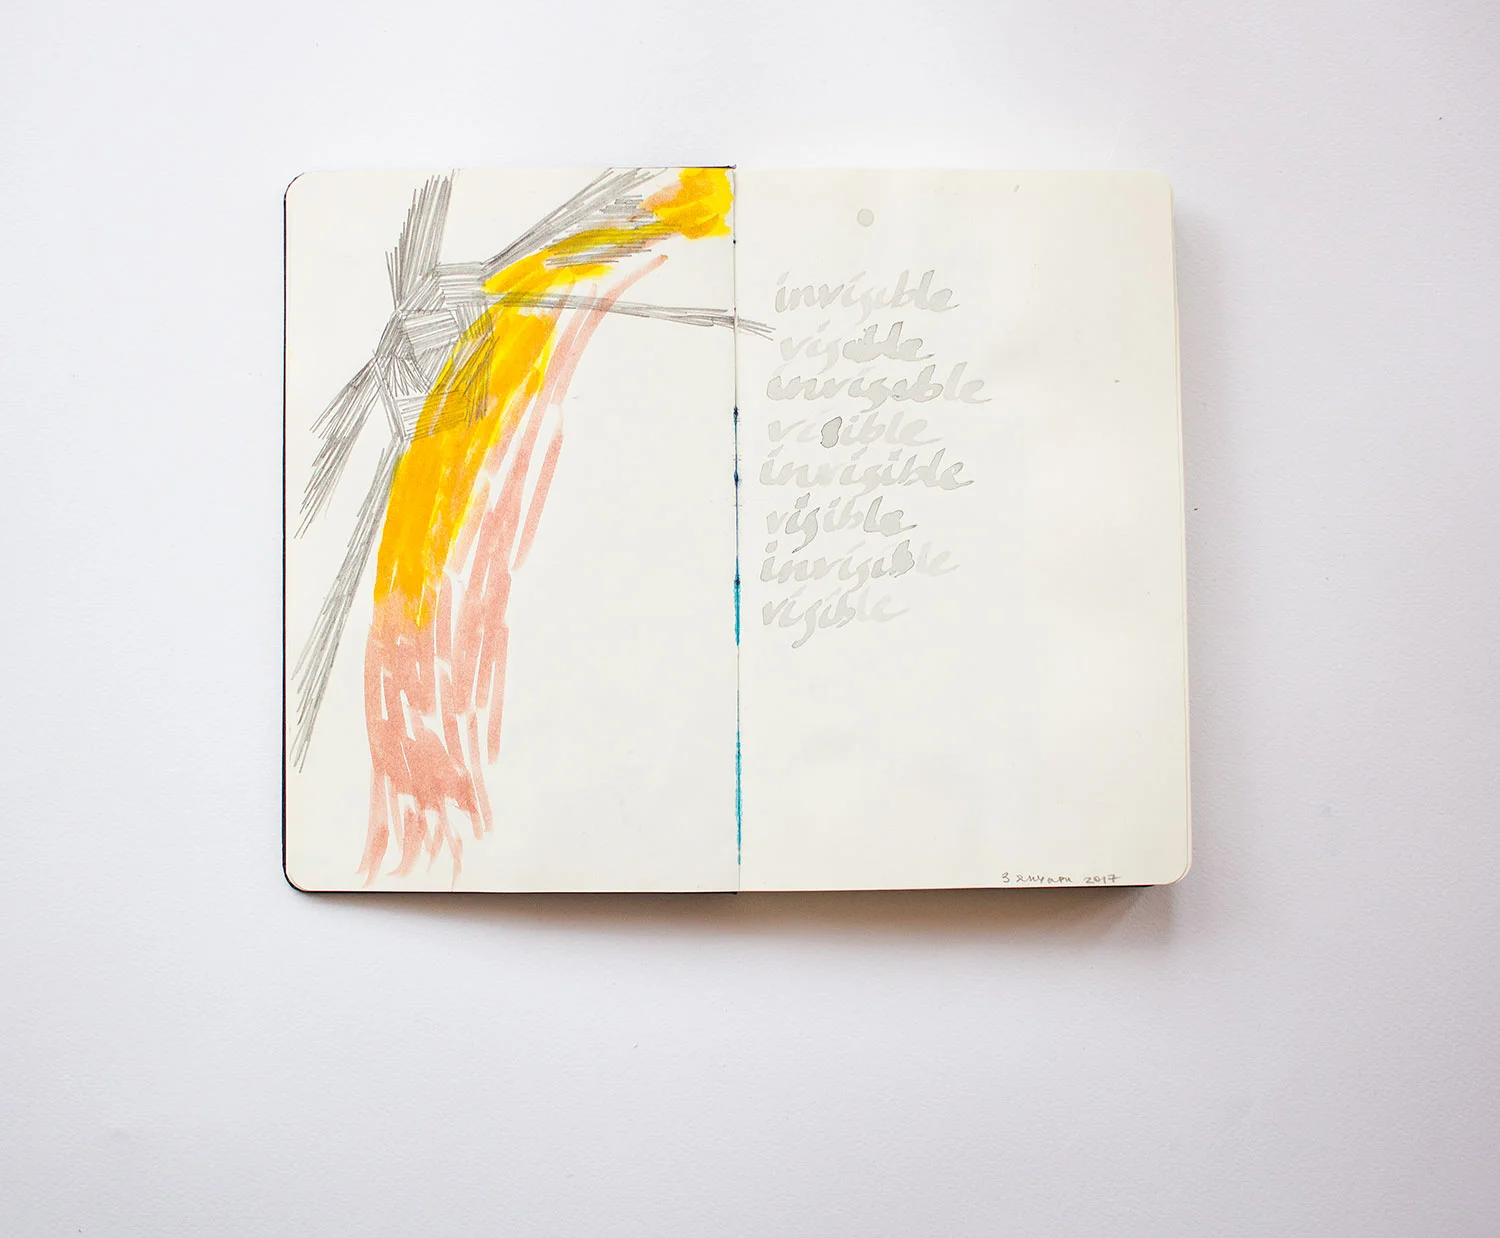 invisible
visible
invisible
visible
invisible
visible
invisible
visible
3 января 2017